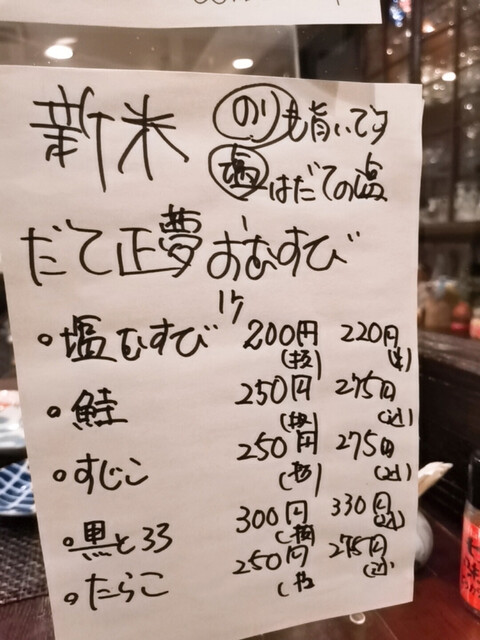 新米 のりも旨いです
塩はだての塩
だて正夢おむすび
1ケ
塩むすび 200円(抜) 220円(込)
鮭 250円(抜) 275円(込)
すじこ 250円(抜) 275円(込)
黒とろろ 300円(抜) 330円(込)
たらこ 250円(抜) 275円(込)